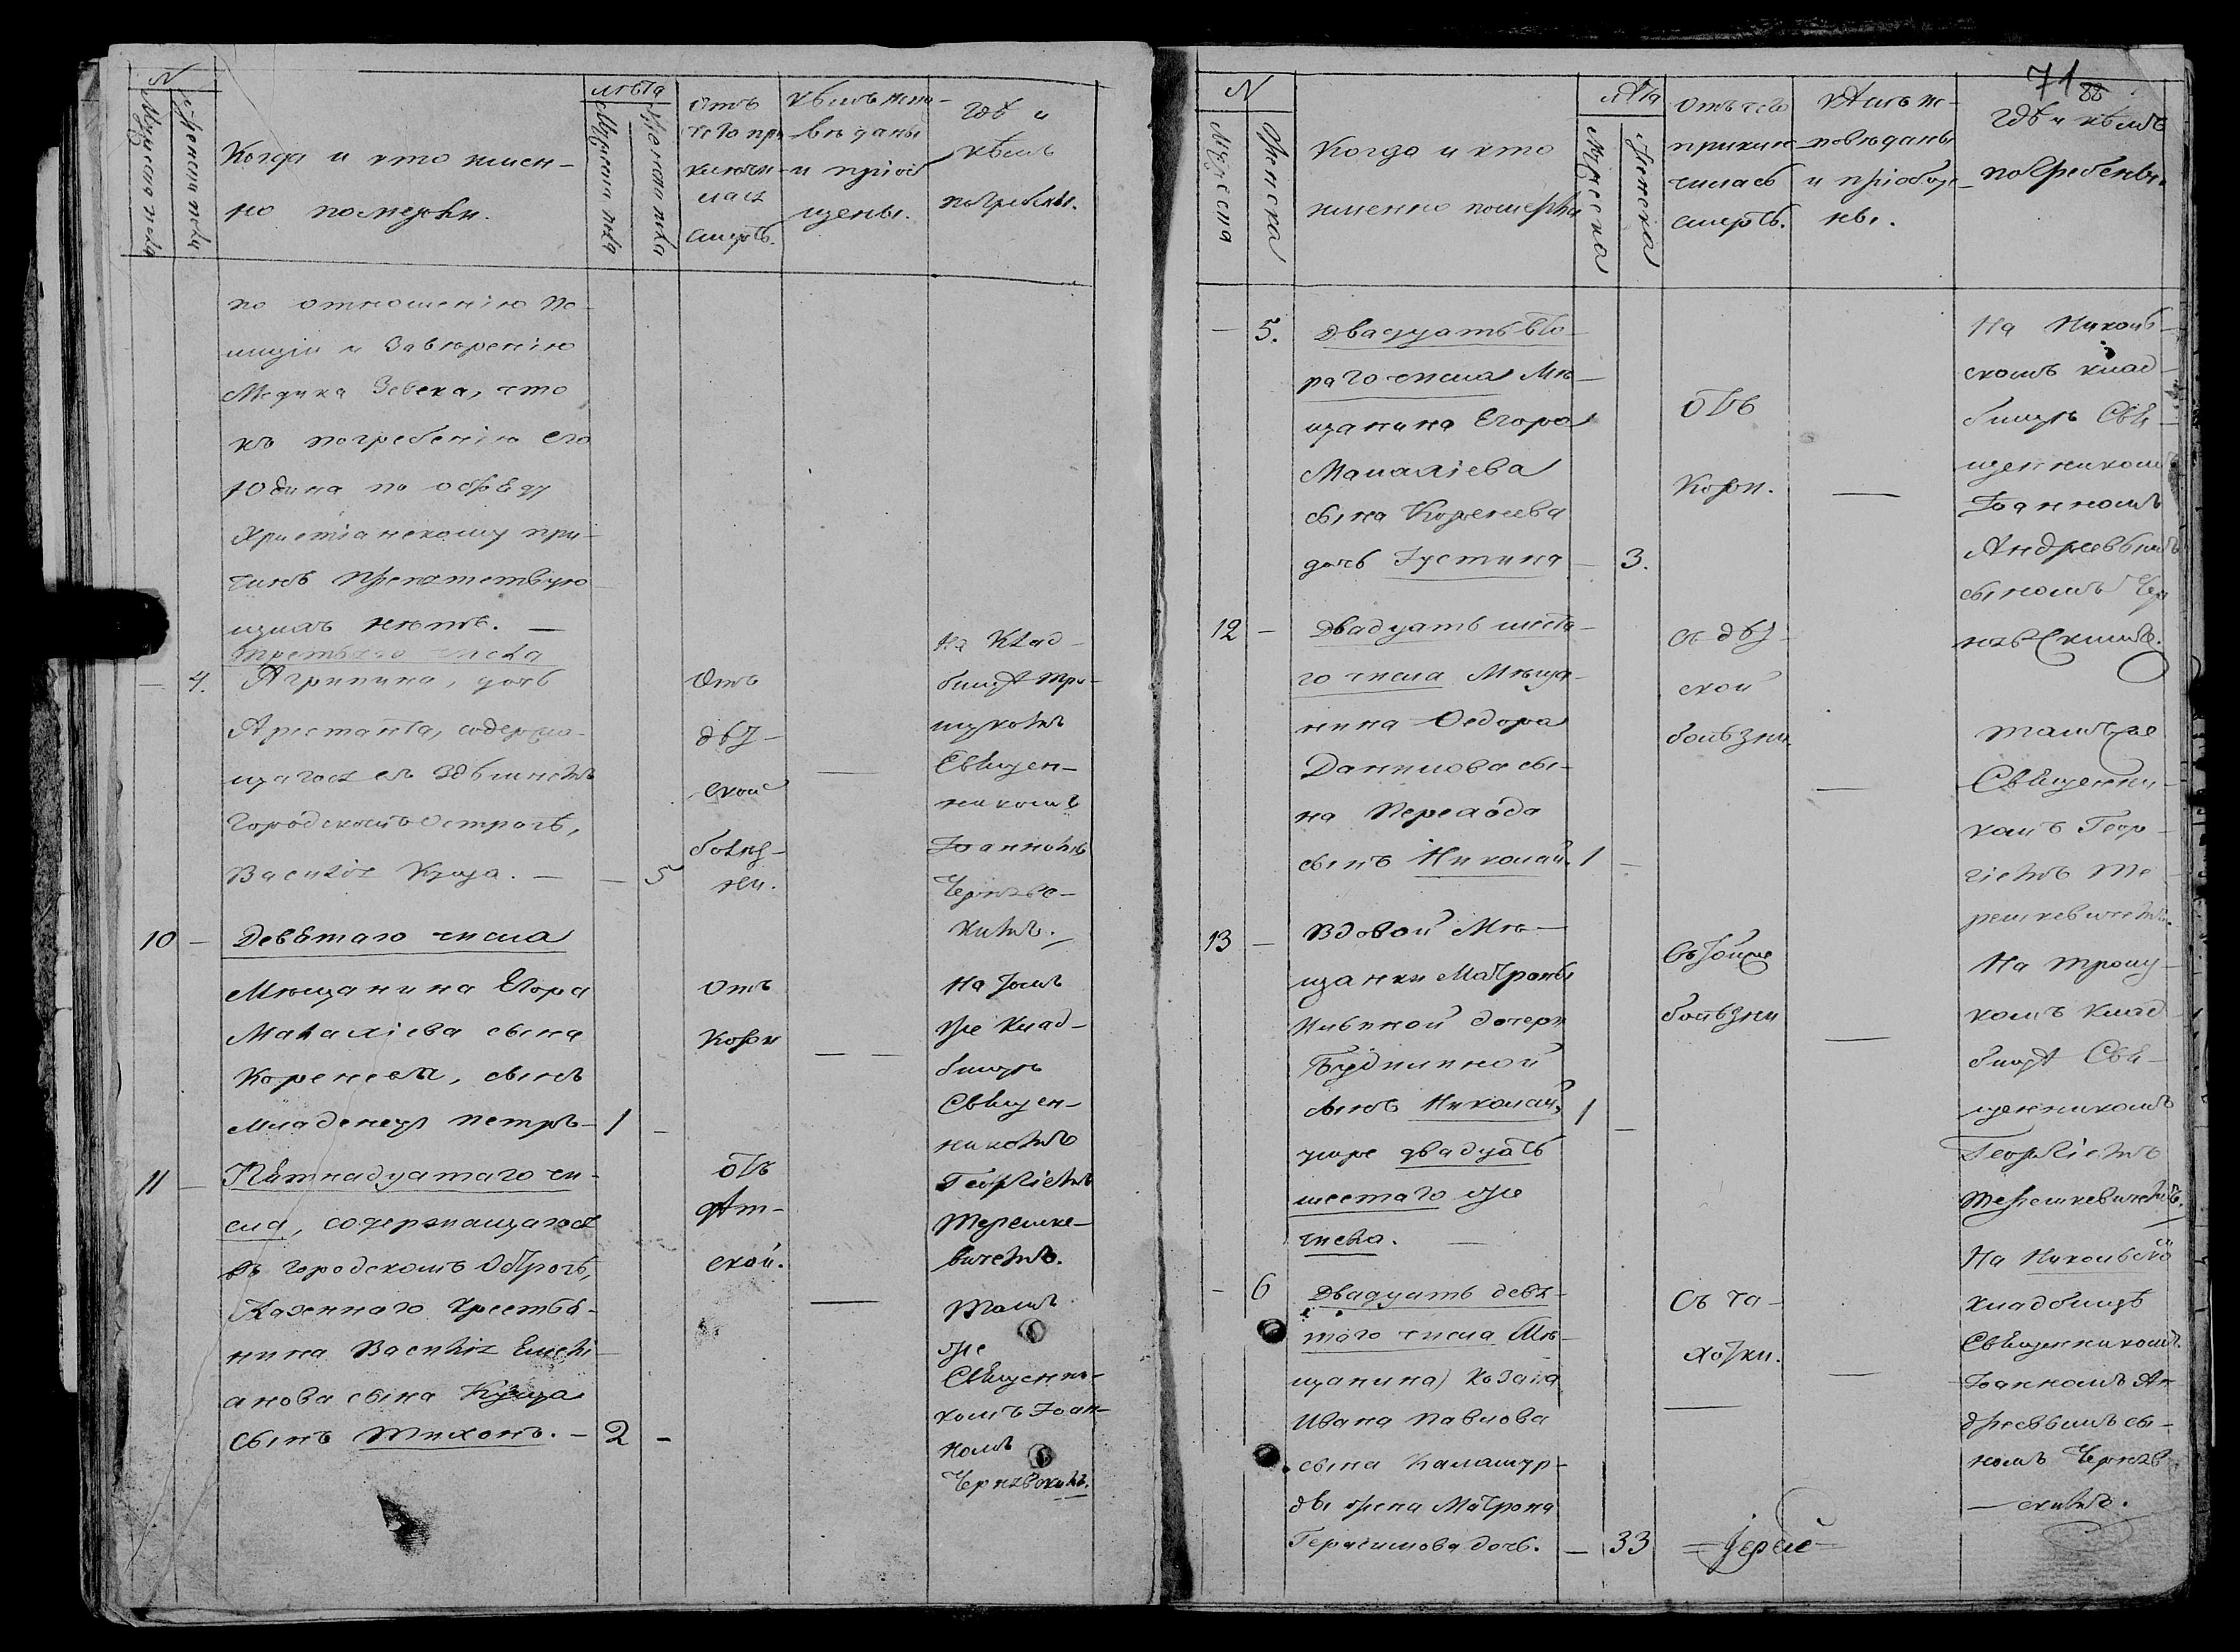 N
Мужеска пола
Женска пола
Когда и кто имен-
но померли.
лѣта
Мужеска пола
Женска пола
Отъ
чего при
ключи
лась
смерть.
Кѣмъ испо-
вѣданы
и пріоб
щены.
Гдѣ и
кѣмъ
погребены.
по отношенію По-
лиціи и Завѣренію
Медика Зевека, что
къ погребенію его
Юдина по обряду
Христіанскому при-
чинъ препятствую
щихъ нѣтъ. —
третьяго числа
— 4. Агрипина, дочь
Арестанта, содержа-
щагося въ Здѣшнемъ
Городскомъ Острогѣ,
Василія Куща. — — 5
Отъ
дѣт-
ской
болѣз-
ни.
—
На Клад-
бищѣ Тро-
ицкомъ
Священ-
никомъ
Іоанномъ
Чернявс-
кимъ.
10 — Девятаго числа
Мѣщанина Егора
Малахіева сына
Коренева, сынъ
младенецъ Петръ — 1 —
Отъ
Кори
— —
На томъ
же Клад-
бищѣ
Священ-
никомъ
Георгіемъ
Терешке-
вичемъ.
11 — Пятнадцатаго чи-
сла, содержащагося
въ городскомъ Острогѣ,
Казеннаго крестья-
нина Василія Емелі-
анова сына Куща
сынъ Тихонъ. — 2 —
отъ
дѣт-
ской.
—
Томъ
же
Священни-
комъ Іоан-
номъ
Чернявскимъ.
71
88
N
Мужеска
Женска
Когда и кто
именно померли
лѣта
Мужеска
Женска
Отъ чего
приклю-
чилась
смерть.
Кѣмъ ис-
повѣданы
и пріобще-
ны.
Гдѣ и кѣмъ
погребены.
— 5. Двадцать вто-
раго числа Мѣ-
щанина Егора
Малахіева
сына Коренева
дочь Іустина — 3.
отъ
Кори.
—
На Николь-
скомъ клад-
бищѣ Свя-
щенникомъ
Іоанномъ
Андреевымъ
сыномъ Чер
нявскимъ.
12 — Двадцать шеста-
го числа Мѣща-
нина Федора
Данилова сы-
на Перехода
сынъ Николай. 1 —
отъ дѣт-
ской
болѣзни
—
тамъ же
Священни-
комъ Геор-
гіемъ Те-
решкевичемъ.
13 — Вдовой Мѣ-
щанки Матроны
Ильиной дочери
Будниной
сынъ Николай, 1 —
умре двадцать
шестаго же
числа. —
въ той же
болѣзни
—
На Троиц-
комъ клад
бищѣ Свя-
щенникомъ
Георгіемъ
Терешкевичемъ.
— 6 Двадцать девя-
таго числа Мѣ-
щанина Козака
Ивана Павлова
сына Каламур-
ды жена Матрона
Герасимова дочь. — 33
Съ ча-
хотки.
—
—
На Никольско
Кладбищѣ
Священникомъ
Іоанномъ Ан-
дреевымъ сы-
номъ Черняв
— скимъ.
= Іерей =